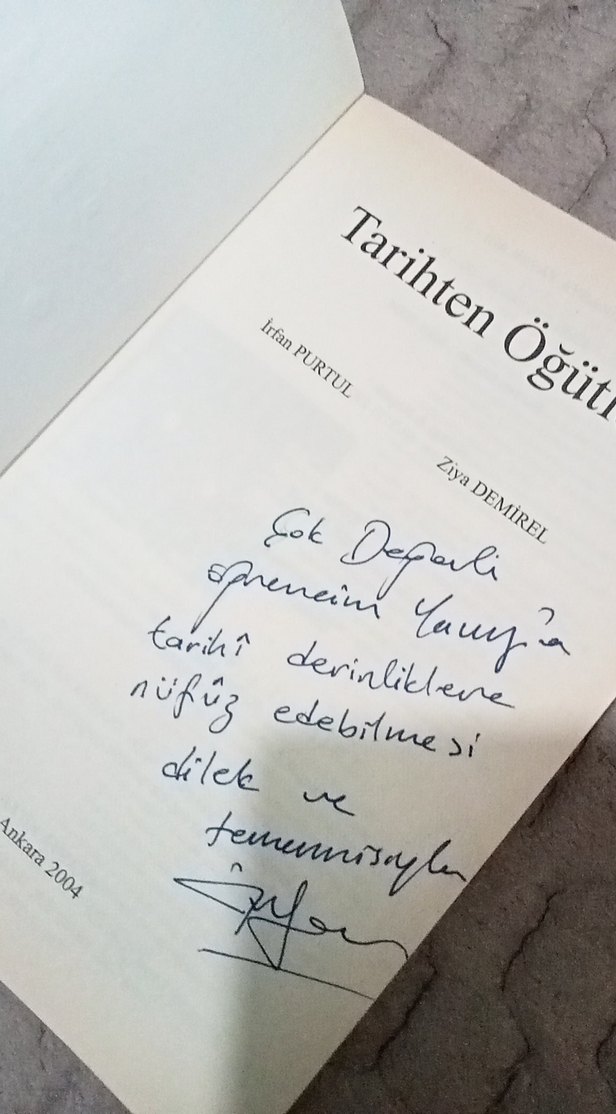 Tarihten Öğütl
İrfan PURTUL
Ziya DEMİREL
Çok Değerli
öğrencim Yavuz'a
tarihî derinliklere
nüfûz edebilmesi
dilek ve
temennisiyle
İrfan
Ankara 2004